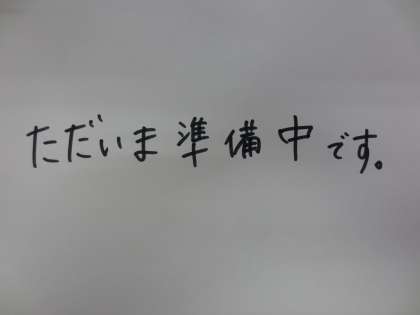 ただいま準備中です。